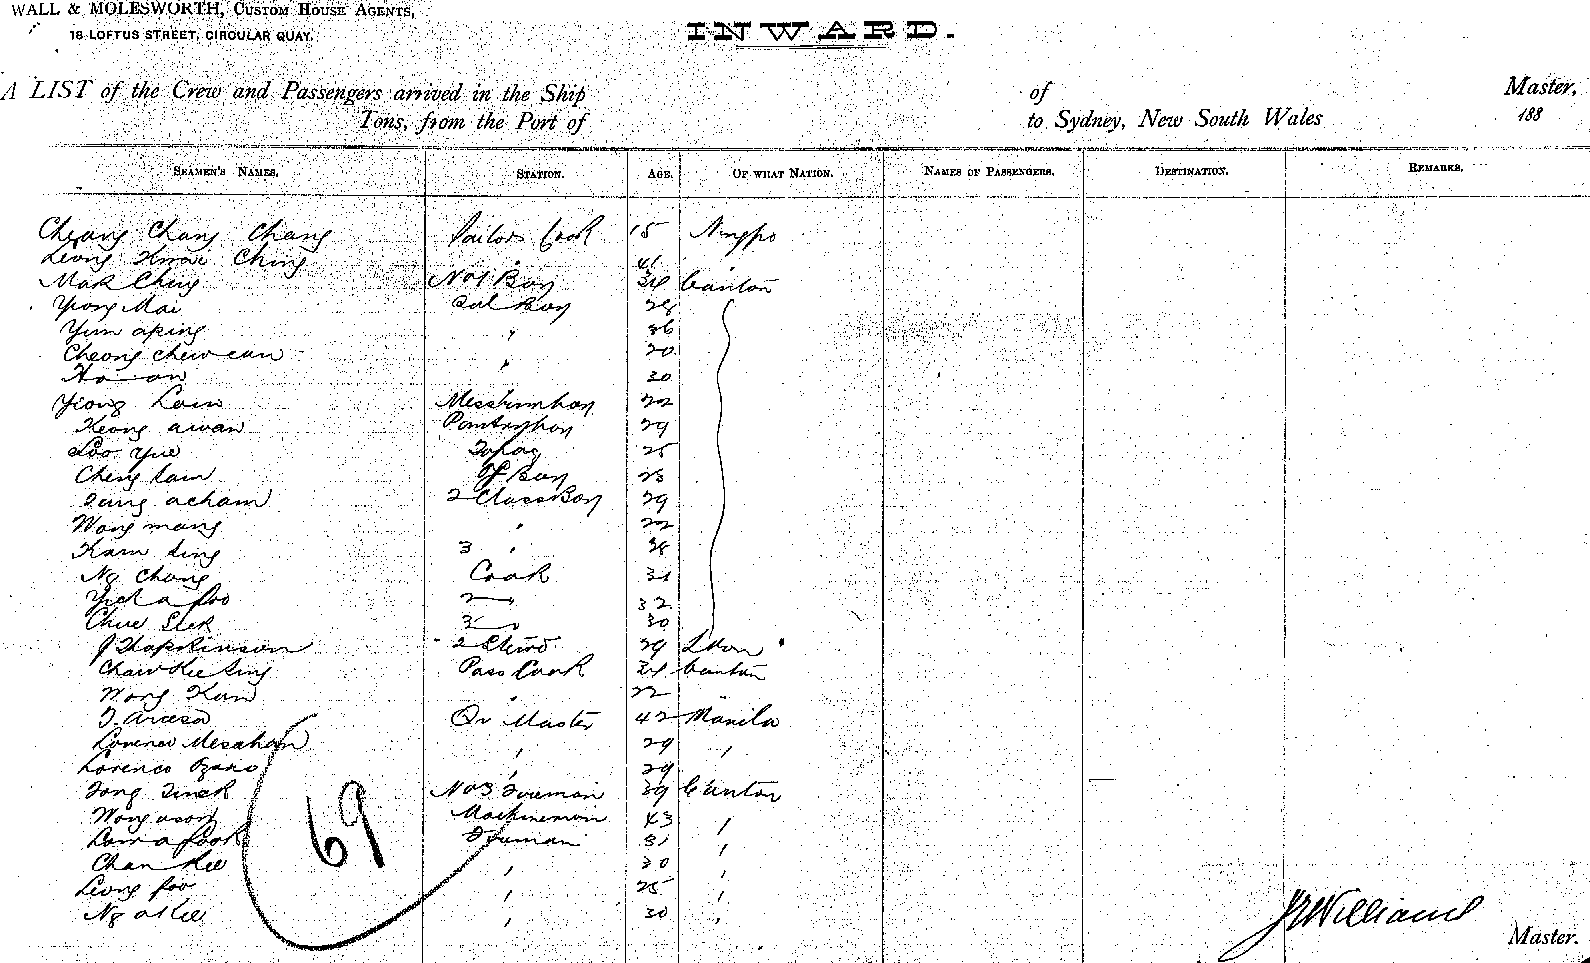 WALL & MOLESWORTH, CUSTOM HOUSE AGENTS,
18 LOFTUS STREET, CIRCULAR QUAY.
INWARD.
A LIST of the Crew and Passengers arrived in the Ship of Master,
Tons, from the Port of to Sydney, New South Wales 188
SEAMEN'S NAMES. STATION. AGE. OF WHAT NATION. NAMES OF PASSENGERS. DESTINATION. REMARKS.
Cheong Chang Chang Sailors Cook 15 Ningpo
Leong Kwai Ching " 41
Mak Ching No 1 Boy 34 Canton
Yeong Mai Boy 28
Yun aping " 36
Cheong chew 20
Ho on " 30
Yiong Loin 22
Keong awan Pantryboy 29
Loo Yue Topaz 25
Cheng lam Boy 23
acham 2 Class Boy 29
Wong mang " 22
Kam ling 3 " 28
Ng Chong Cook 31
a foo 2 " 32
Chue Sek 3 " 30
J Hopkinson 2 29
Chaw Kee Sing Pass Cook 34 Canton
Wong Kan " 22 "
Qr Master 42 Manila
29 "
Lorenco " 29
Tong No 3 Fireman 39 Canton
Wong 43 "
Lam a fook Fireman 31 "
Chan Kee " 30 "
Leong foo " 25 "
Ng a Kee " 30 "
69
J Williams
Master.